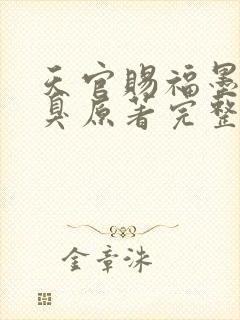 天官赐福墨
臭原著完整
金章洙